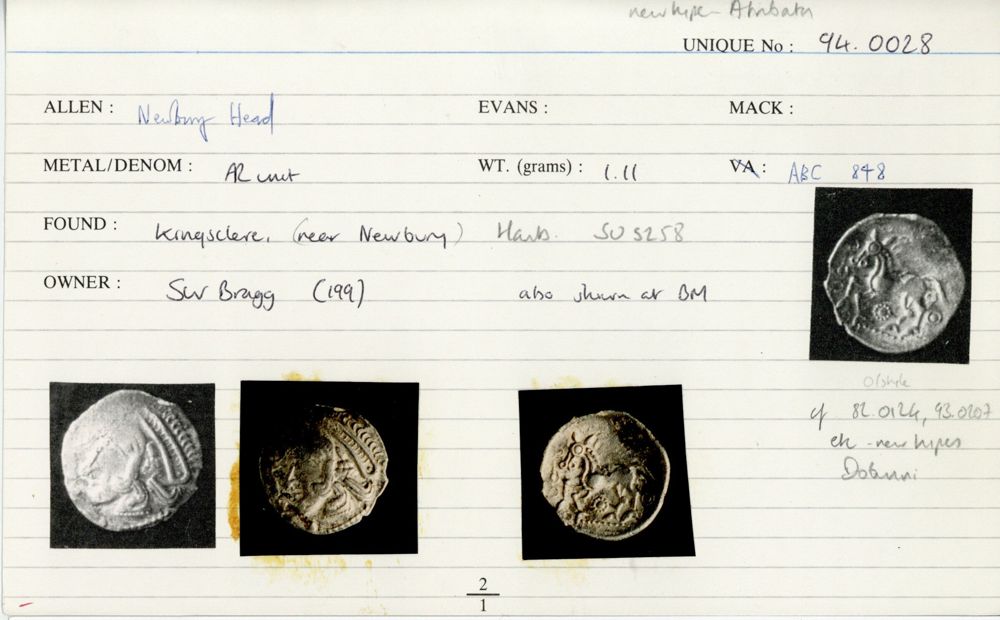 new type - Atrebatic
UNIQUE No : 94.0028
ALLEN : Newbury Head EVANS : MACK :
METAL/DENOM : AR unit WT. (grams) : 1.11 VA : ABC 848
FOUND : Kingsclere, (near Newbury) Hants. SU 5258
OWNER : Bragg (199) also shown at BM
cf 82.0124, 93.0207
etc - new types
Dobunni
2
1